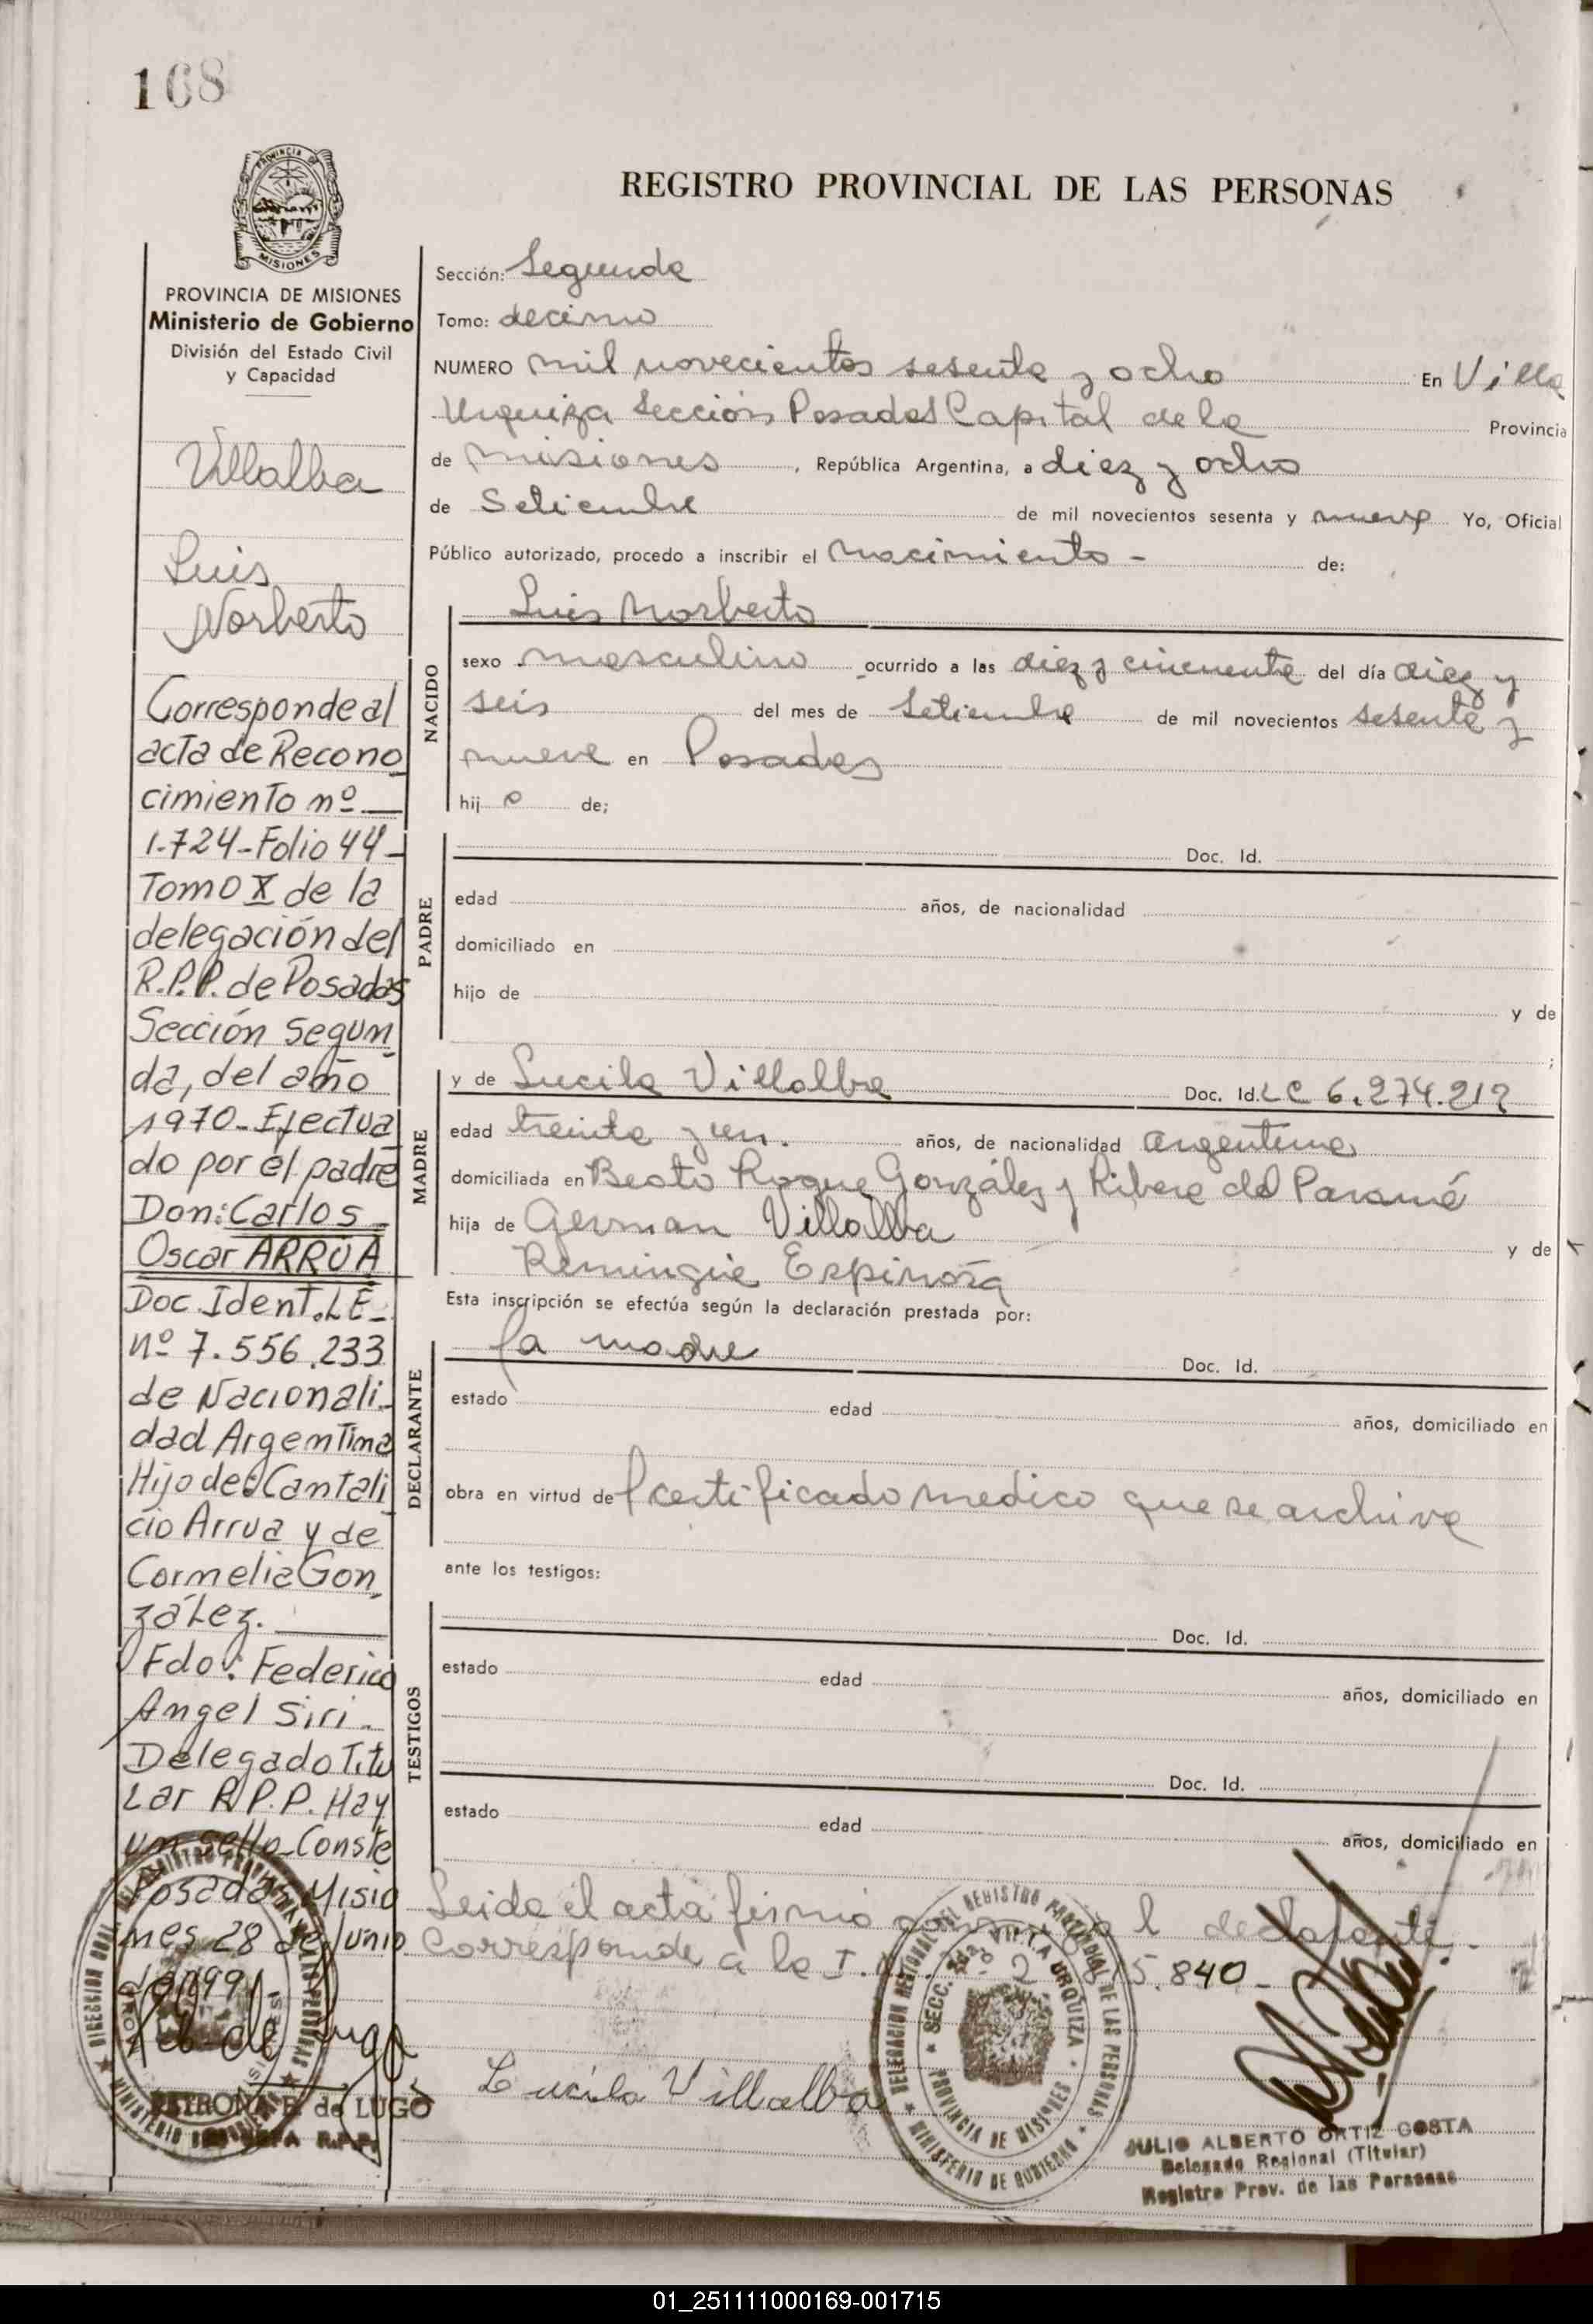 168
REGISTRO PROVINCIAL DE LAS PERSONAS
PROVINCIA DE MISIONES
Ministerio de Gobierno
División del Estado Civil
y Capacidad
Villalba
Luis
Norberto
Corresponde al
acta de Recono
cimiento nº
1.724-Folio 44-
Tomo X de la
delegación del
R.P.P. de Posadas
Sección Segun
da, del año
1970-Efectua
do por el padre
Don: Carlos
Oscar ARRUA
Doc. Ident. LE-
nº 7.556.233
de Nacionali-
dad Argentina
Hijo de: Cantali
cio Arrua y de
Cornelia Gon
zález.
Fdo: Federico
Angel Siri-
Delegado Titu
Lar R.P.P. Hay
un sello-Conste
Posadas, Misio
nes 28 de Junio
de 1991
PETRONA E. de LUGO
R.P.P.
Sección: Segunda
Tomo: decimo
NUMERO mil novecientos sesenta y ocho En Villa
Urquiza Sección Posadas Capital de la Provincia
de Misiones, República Argentina, a diez y ocho
de Setiembre de mil novecientos sesenta y nueve Yo, Oficial
Público autorizado, procedo a inscribir el nacimiento - de:
NACIDO
Luis Norberto
sexo masculino ocurrido a las diez y cincuenta del día diez y
seis del mes de Setiembre de mil novecientos sesenta y
nueve en Posadas
hij o de;
PADRE
Doc. Id.
edad años, de nacionalidad
domiciliado en
hijo de y de
;
MADRE
y de Lucila Villalba Doc. Id. LC 6.274.212
edad treinta y un. años, de nacionalidad argentina
domiciliada en Beato Roque González y Ribera del Paraná
hija de German Villalba y de
Remingia Espinosa
Esta inscripción se efectúa según la declaración prestada por:
DECLARANTE
la madre Doc. Id.
estado edad años, domiciliado en
obra en virtud del certificado medico que se archiva
ante los testigos:
TESTIGOS
Doc. Id.
estado edad años, domiciliado en
Doc. Id.
estado edad años, domiciliado en
Leida el acta firmó l declarante.
Corresponde a la I. 5.840-
Lucila Villalba
DELEGACION REGIONAL DEL REGISTRO PROVINCIAL DE LAS PERSONAS
SECC. 2da VILLA URQUIZA
PROVINCIA DE MISIONES
MINISTERIO DE GOBIERNO
JULIO ALBERTO ORTIZ COSTA
Delegado Regional (Titular)
Registro Prov. de las Personas
01_251111000169-001715